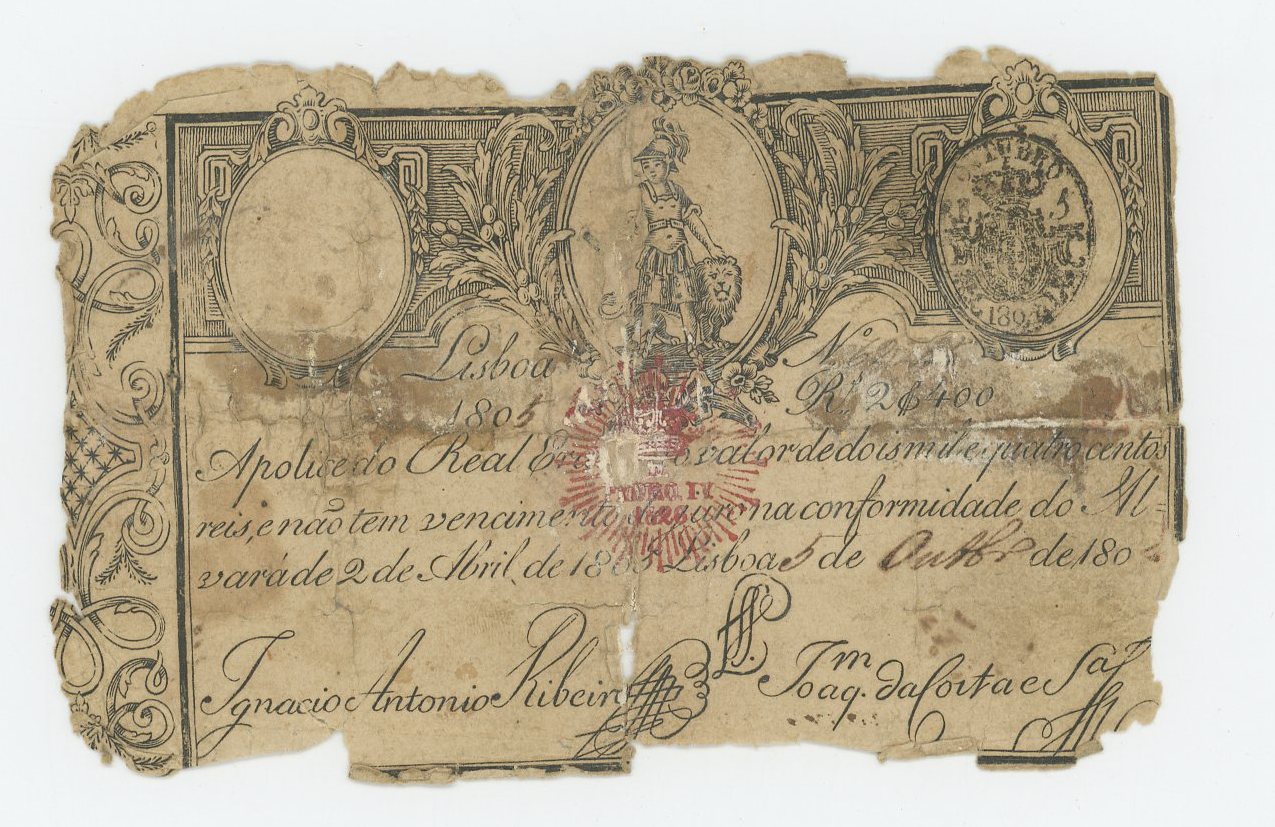 OUTUBRO
5
180
Lisboa
1805
N.º
R.ˢ 2$400
Apolice do Real Er valor de dois mil e quatro centos
reis, e não tem vencimento na conformidade do Al-
vará de 2 de Abril de 1805 Lisboa 5 de Outbr.º de 180
PEDRO IV
1826
Ignacio Antonio Ribeiro
Joaq.ᵐ da Costa e Sᵃ